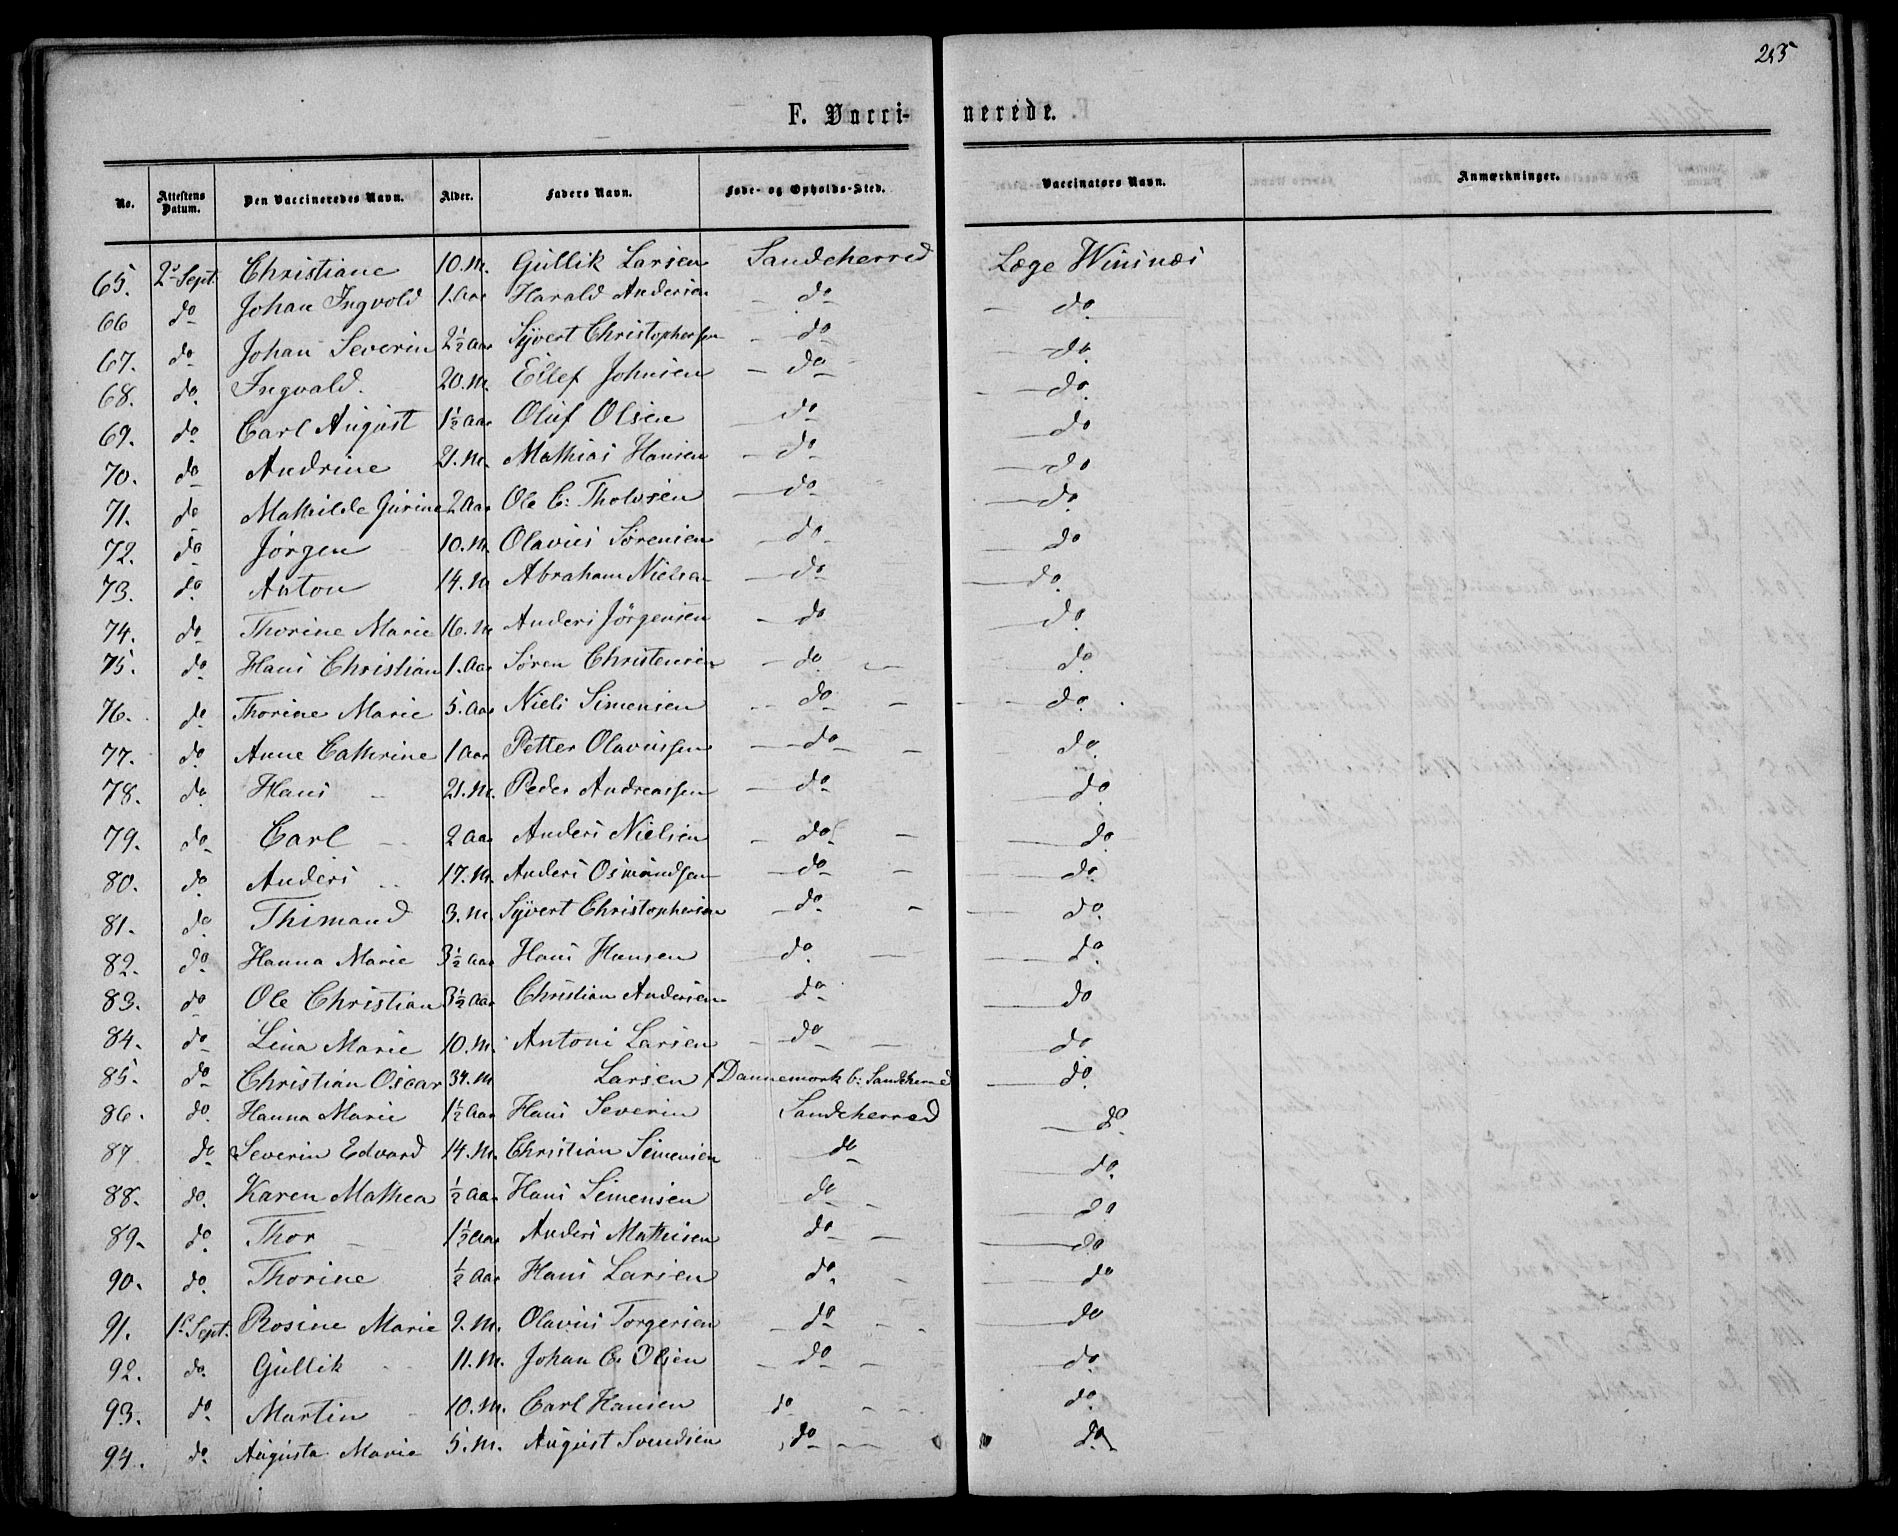 255
F. Vacci- nerede.
No. Attestens Datum. Den Vaccineredes Navn. Alder. Faders Navn. Føde- og Opholds-Sted. Vaccinators Navn. Anmærkninger.
65. 2 Sept. Christiane 10.M. Gullik Larsen Sandeherred Læge Winsnæs
66 do Johan Ingvold 1.Aar Harald Andersen do do
67. do Johan Severin 2½ Aar Syvert Christophersen do do
68. do Ingvald. 20.M. Ellef Johnsen do do
69. do Carl August 1½ Aar Oluf Olsen do do
70. do Andrine 21.M. Mathias Hansen do do
71. do Mathilde Gurine 2 Aar Ole C: Tholvsen do do
72. do Jørgen 10.M. Olavus Sørensen do do
73. do Anton 14.M Abraham Nielsen do do
74. do Thorine Marie 16.M Anders Jörgensen do do
75. do Hans Christian 1.Aar Søren Christensen do do
76. do Thorine Marie 5.Aar Niels Simensen do do
77. do Anne Cathrine 1 Aar Petter Olavussen do do
78. do Hans 21.M. Peder Andreassen do do
79. do Carl 2 Aar Anders Nielsen do do
80. do Anders 17.M. Anders Osmundsen do do
81. do Thimand 3.M. Syvert Christophersen do do
82. do Hanna Marie 3½ Aar Hans Hansen do do
83. do Ole Christian 3½ Aar Christian Andersen do do
84. do Lina Marie 10.M. Antoni Larsen do do
85. do Christian Oscar 34.M Larsen Dannemork b: Sandeherred do
86. do Hanna Marie 1½ Aar Hans Severin Sandeherred do
87 do Severin Edvard 14.M. Christian Simensen do do
88. do. Karen Mathea ½ Aar Hans Simensen do do
89. do. Thor 1½ Aar Anders Mathisen do do
90. do. Thorine ½ Aar Hans Larsen do. do
91. Sept. Rosine Marie 9.M. Olavus Torgersen do do
92. do. Gullik 11.M. Johan C. Olsen do do
93. do. Martin 10.M. Carl Hansen do do
94. do. Augusta Marie 5.M. August Svendsen do do